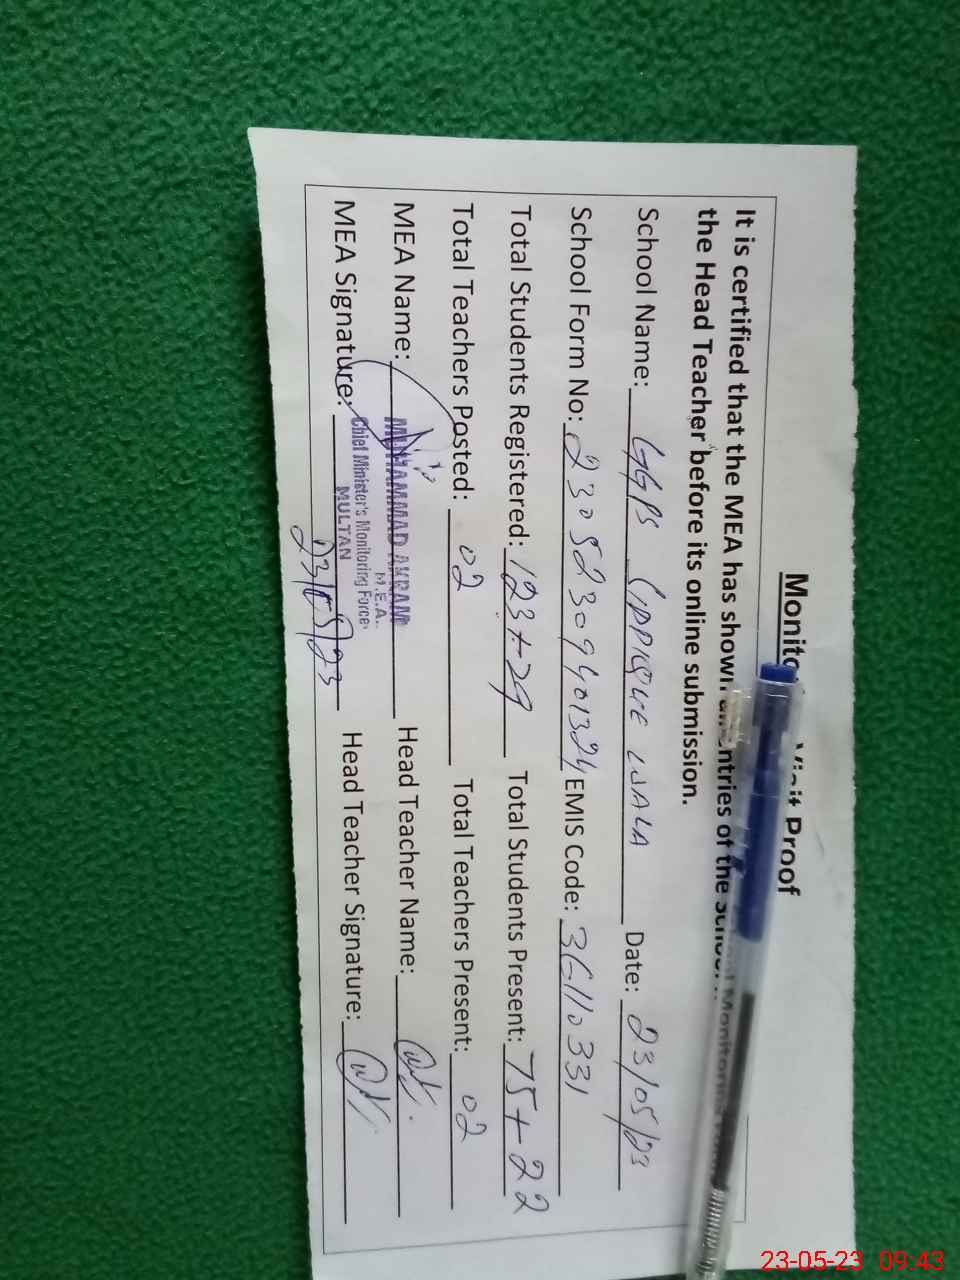 Visit Proof
It is certified that the MEA has shown entries of the
the Head Teacher before its online submission.
School Name: GGPS WALA Date: 23/05/23
School Form No: EMIS Code: 36110331
Total Students Registered: 123+29 Total Students Present: 75+22
Total Teachers Posted: 02 Total Teachers Present: 02
MEA Name: MUHAMMAD AKRAM Head Teacher Name:
M.E.A.
Chief Minister's Monitoring Force
MULTAN
MEA Signature: 23/05/23 Head Teacher Signature:
23-05-23 09:43